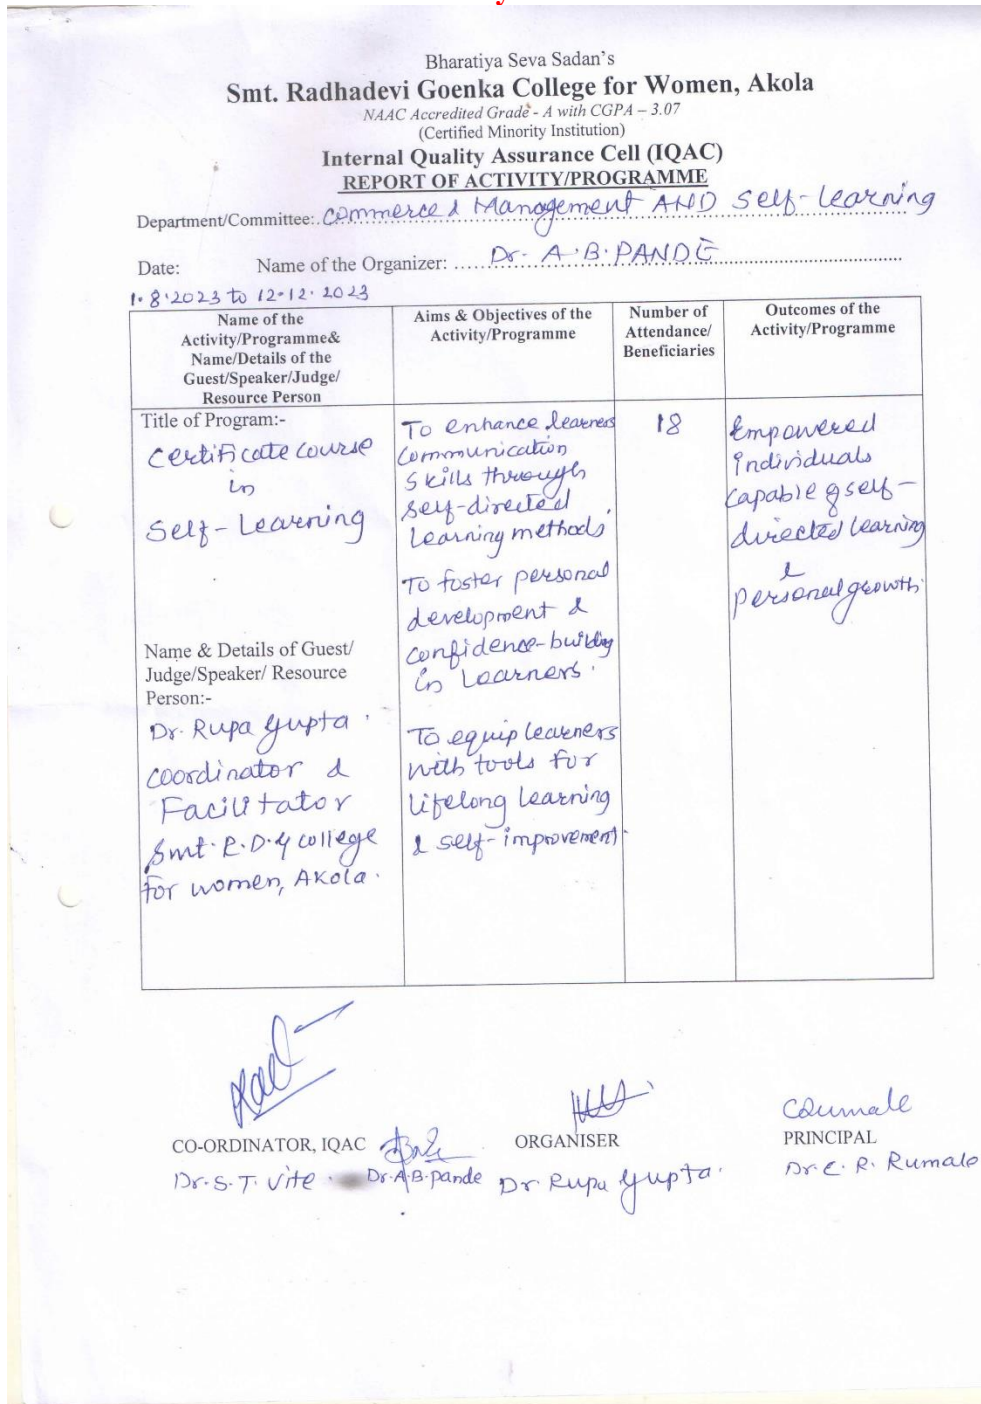 Bharatiya Seva Sadan's
Smt. Radhadevi Goenka College for Women, Akola
NAAC Accredited Grade - A with CGPA – 3.07
(Certified Minority Institution)
Internal Quality Assurance Cell (IQAC)
REPORT OF ACTIVITY/PROGRAMME
Department/Committee:. Commerce & Management AND Self-Learning
Date: Name of the Organizer: Dr. A.B. PANDE
1.8.2023 to 12.12.2023
Name of the
Activity/Programme&
Name/Details of the
Guest/Speaker/Judge/
Resource Person
Aims & Objectives of the
Activity/Programme
Number of
Attendance/
Beneficiaries
Outcomes of the
Activity/Programme
Title of Program:-
Certificate course
in
Self-Learning
Name & Details of Guest/
Judge/Speaker/ Resource
Person:-
Dr. Rupa Gupta.
Coordinator &
Facilitator
Smt. R.D.G college
for women, Akola.
To enhance learners
communication
skills through
self-directed
learning methods.
To foster personal
development &
confidence-building
in Learners.
To equip learners
with tools for
lifelong learning
& self-improvement.
18
Empowered
individuals
capable of self-
directed learning
&
personal growth.
CO-ORDINATOR, IQAC
Dr. S. T. Vite
Dr. A.B. pande
ORGANISER
Dr Rupa Gupta.
PRINCIPAL
Dr. C. R. Rumale